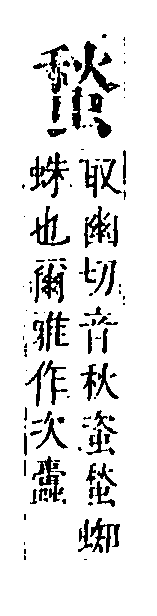 取幽切音秋蜘
蛛也爾雅作次蟗